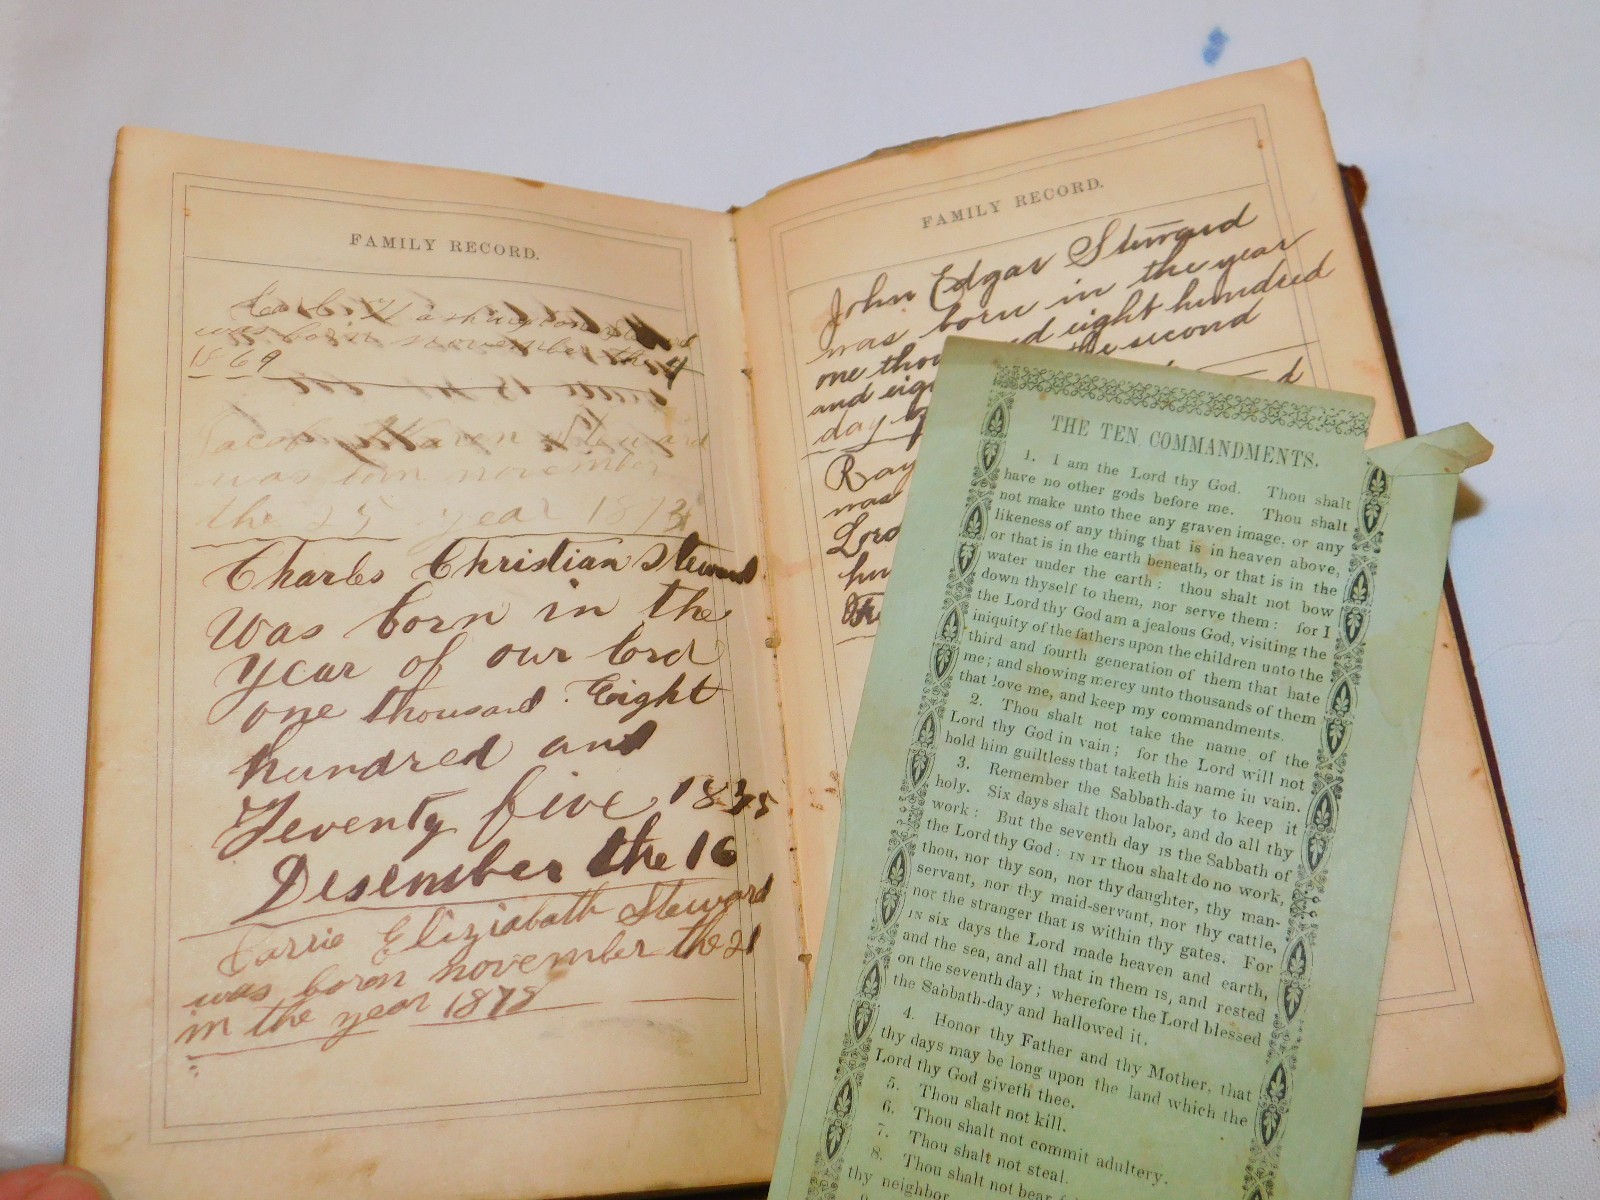 FAMILY RECORD.
Washington
was born november the 4
1869
Jacob Steward
was born november
the 25 year 1873
Charles Christian Steward
Was born in the
year of our lord
one thousand Eight
hundred and
Seventy five 1875
Desember the 16
Carrie Eliziabath Steward
was born november the 21
in the year 1878
FAMILY RECORD.
John Edgar Steward
was born in the year
one thou d eight hundred
and eig the second
day
Ray d
was
Lord
hu
THE TEN COMMANDMENTS.
1. I am the Lord thy God. Thou shalt
have no other gods before me. Thou shalt
not make unto thee any graven image, or any
likeness of any thing that is in heaven above,
or that is in the earth beneath, or that is in the
water under the earth: thou shalt not bow
down thyself to them, nor serve them: for I
the Lord thy God am a jealous God, visiting the
iniquity of the fathers upon the children unto the
third and fourth generation of them that hate
me; and showing mercy unto thousands of them
that love me, and keep my commandments.
2. Thou shalt not take the name of the
Lord thy God in vain; for the Lord will not
hold him guiltless that taketh his name in vain.
3. Remember the Sabbath-day to keep it
holy. Six days shalt thou labor, and do all thy
work: But the seventh day is the Sabbath of
the Lord thy God: IN IT thou shalt do no work,
thou, nor thy son, nor thy daughter, thy man-
servant, nor thy maid-servant, nor thy cattle,
nor the stranger that is within thy gates. For
IN six days the Lord made heaven and earth,
and the sea, and all that in them is, and rested
on the seventh day; wherefore the Lord blessed
the Sabbath-day and hallowed it.
4. Honor thy Father and thy Mother, that
thy days may be long upon the land which the
Lord thy God giveth thee.
5. Thou shalt not kill.
6. Thou shalt not commit adultery.
7. Thou shalt not steal.
8. Thou shalt not bear
thy neighbor